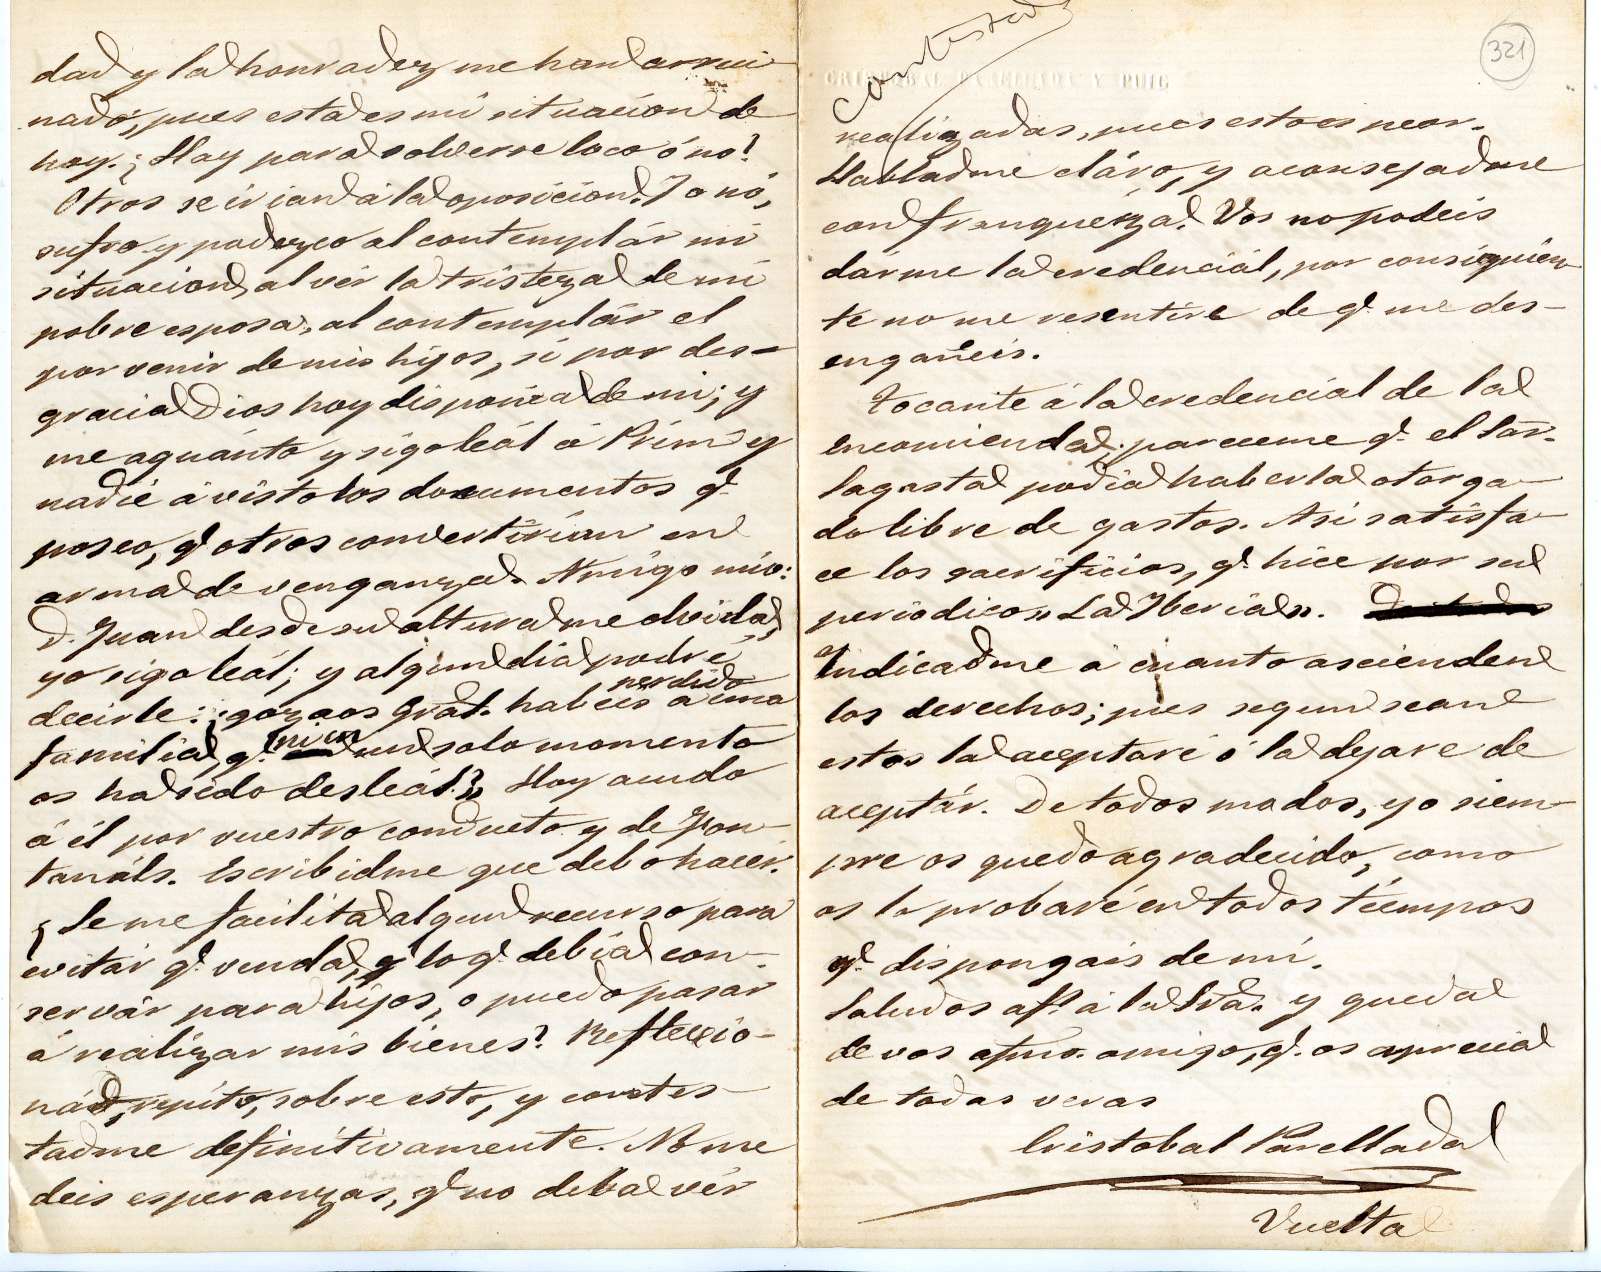 dad y la honradez me han arrui
nado, pues esta es mi situacion de
hoy. ¿Hay para volverse loco ó no?
Otros se irian á la oposicion. Yo nó,
sufro y padezco al contemplár mi
situacion, al vér la tristeza de mi
pobre esposa, al contemplár el
porvenir de mis hijos, si por des-
gracia Dios hoy dispone de mi; y
me aguánto y sigo leál á Prim y
nadie á visto los documentos q.e
poseo, q.e otros convertirian en
arma de venganza. Amigo mio:
D. Juan desde su altura me olvida,
yo sigo leál; y algun dia podré
decirle: ¡gozaos Gral. habeis perdido á una
familia, q.e ni en un solo momento
os ha sido desleál!" Hoy acudo
á él por vuestro conducto y de Fon-
tanáls. Escribidme que debo hacér.
¿Se me facilita algun recurso para
evitár q.e venda, q.e lo q.e debia con-
servár para hijos, o puedo pasar
á realizar mis bienes? Reflexio-
nád, repito, sobre esto, y contes-
tadme definitivamente. No me
deis esperanzas, q.e no deba vér
Contestada
321
CRISTOBAL PARELLADA Y PUIG
realizadas, pues esto es peor.
Habladme cláro, y aconsejadme
con franqueza. Vos no podeis
dárme la credenciál, por consiguien-
te no me resentiré de q.e me des-
engañeis.
Tocante á la credencial de la
encomienda, pareceme q.e el Sár.
Sagasta podia haberla otorga-
do libre de gastos. Asi satisfa-
ce los sacrificios, q.e hice por su
periodico "La Iberia".
Indicadme á cuanto ascienden
los derechos; pues segun sean
estos la aceptaré ó la dejare de
aceptár. De todos modos, yo siem-
pre os quedo agradecido, como
os lo probaré en todos tiempos
q.e dispongais de mí.
Saludos af.s á la Sra. y queda
de vos afmo. amigo, q.e os aprecia
de todas veras
Cristobal Parellada
Vuelta